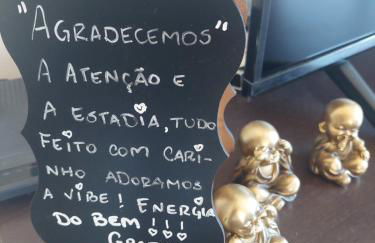 "AGRADECEMOS"
A ATENÇÃO E
A ESTADIA, TUDO
FEITO COM CARI-
NHO ADORAMOS
A VIBE! ENERGIA
DO BEM!!!